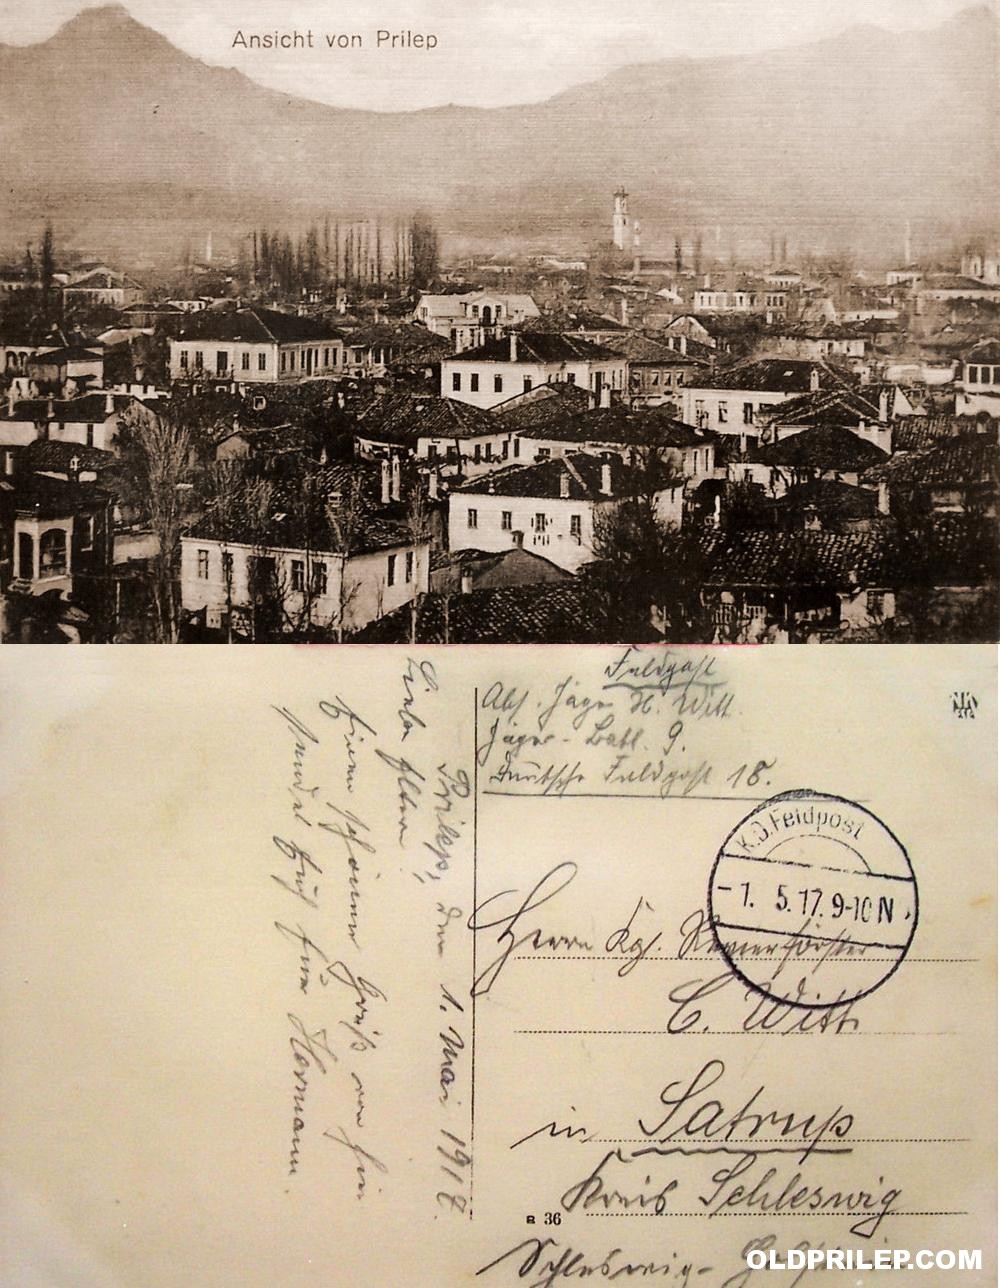 Ansicht von Prilep
Feldpost
Abs. Jäger H. Witt.
Jäger-Batl. 9.
Deutsche Feldpost 18.
K.D. Feldpost
-1. 5.17. 9-10 N
Herrn Kgl. Revierförster
C. Witt.
in Satrup
Kreis Schleswig
Schleswig-Holstein
B 36
Prilep, den 1. Mai 1917.
Liebe Eltern!
Einen schönen Gruß von hier
sendet Euch Euer Hermann.
OLDPRILEP.COM